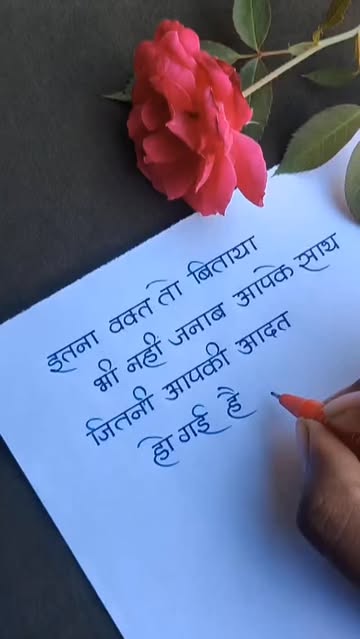 इतना वक्त तो बिताया
भी नही जनाब आपके साथ
जितनी आपकी आदत
हो गई है